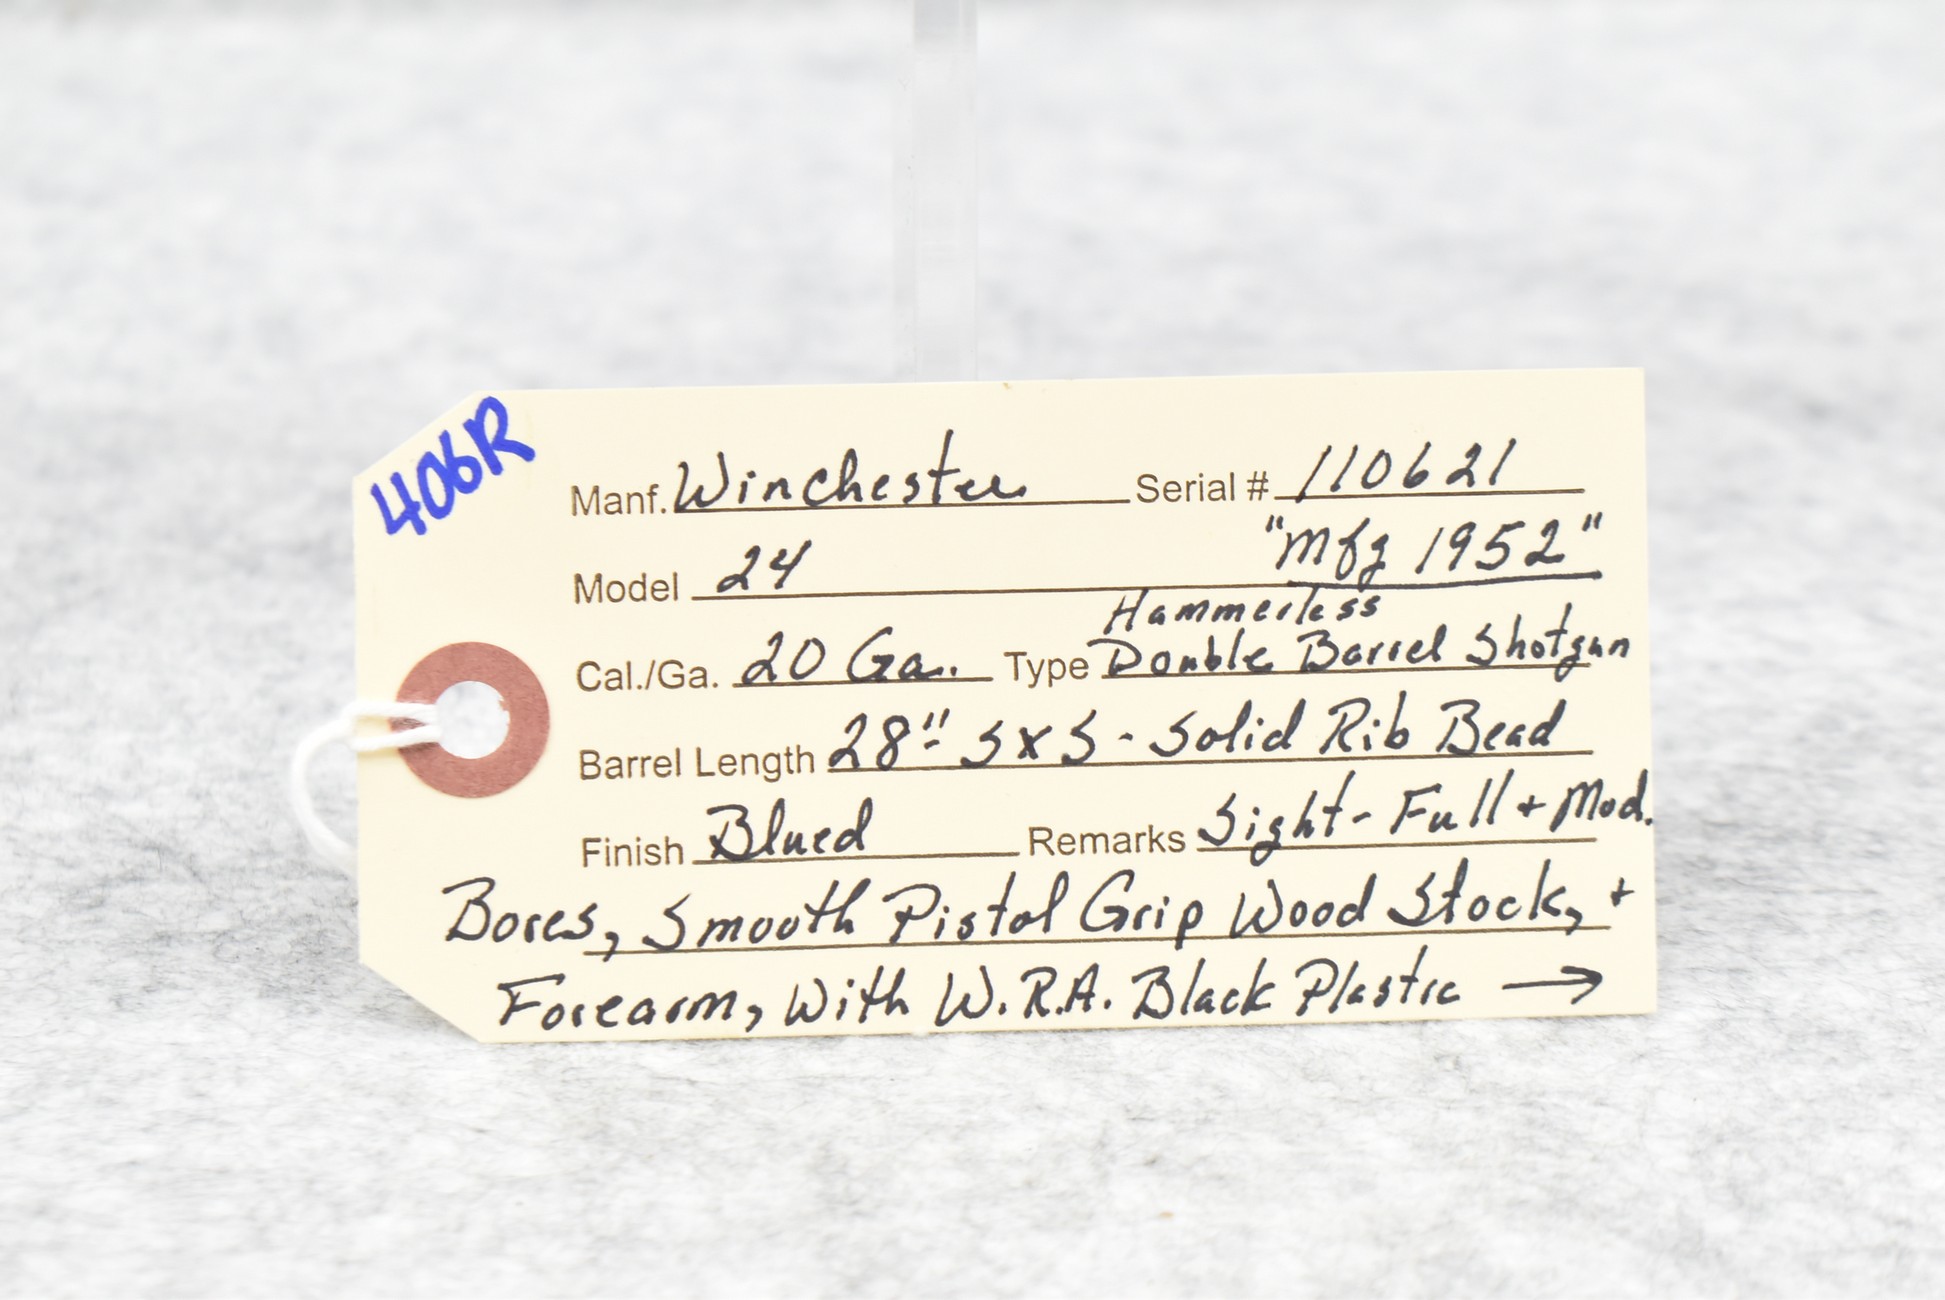 406R
Manf. Winchester Serial # 110621
Model 24 "Mfg 1952"
Hammerless
Cal./Ga. 20 Ga. Type Double Barrel Shotgun
Barrel Length 28" SxS - Solid Rib Bead
Finish Blued Remarks Sight - Full + Mod.
Bores, Smooth Pistol Grip Wood Stock, +
Forearm, With W.R.A. Black Plastic →